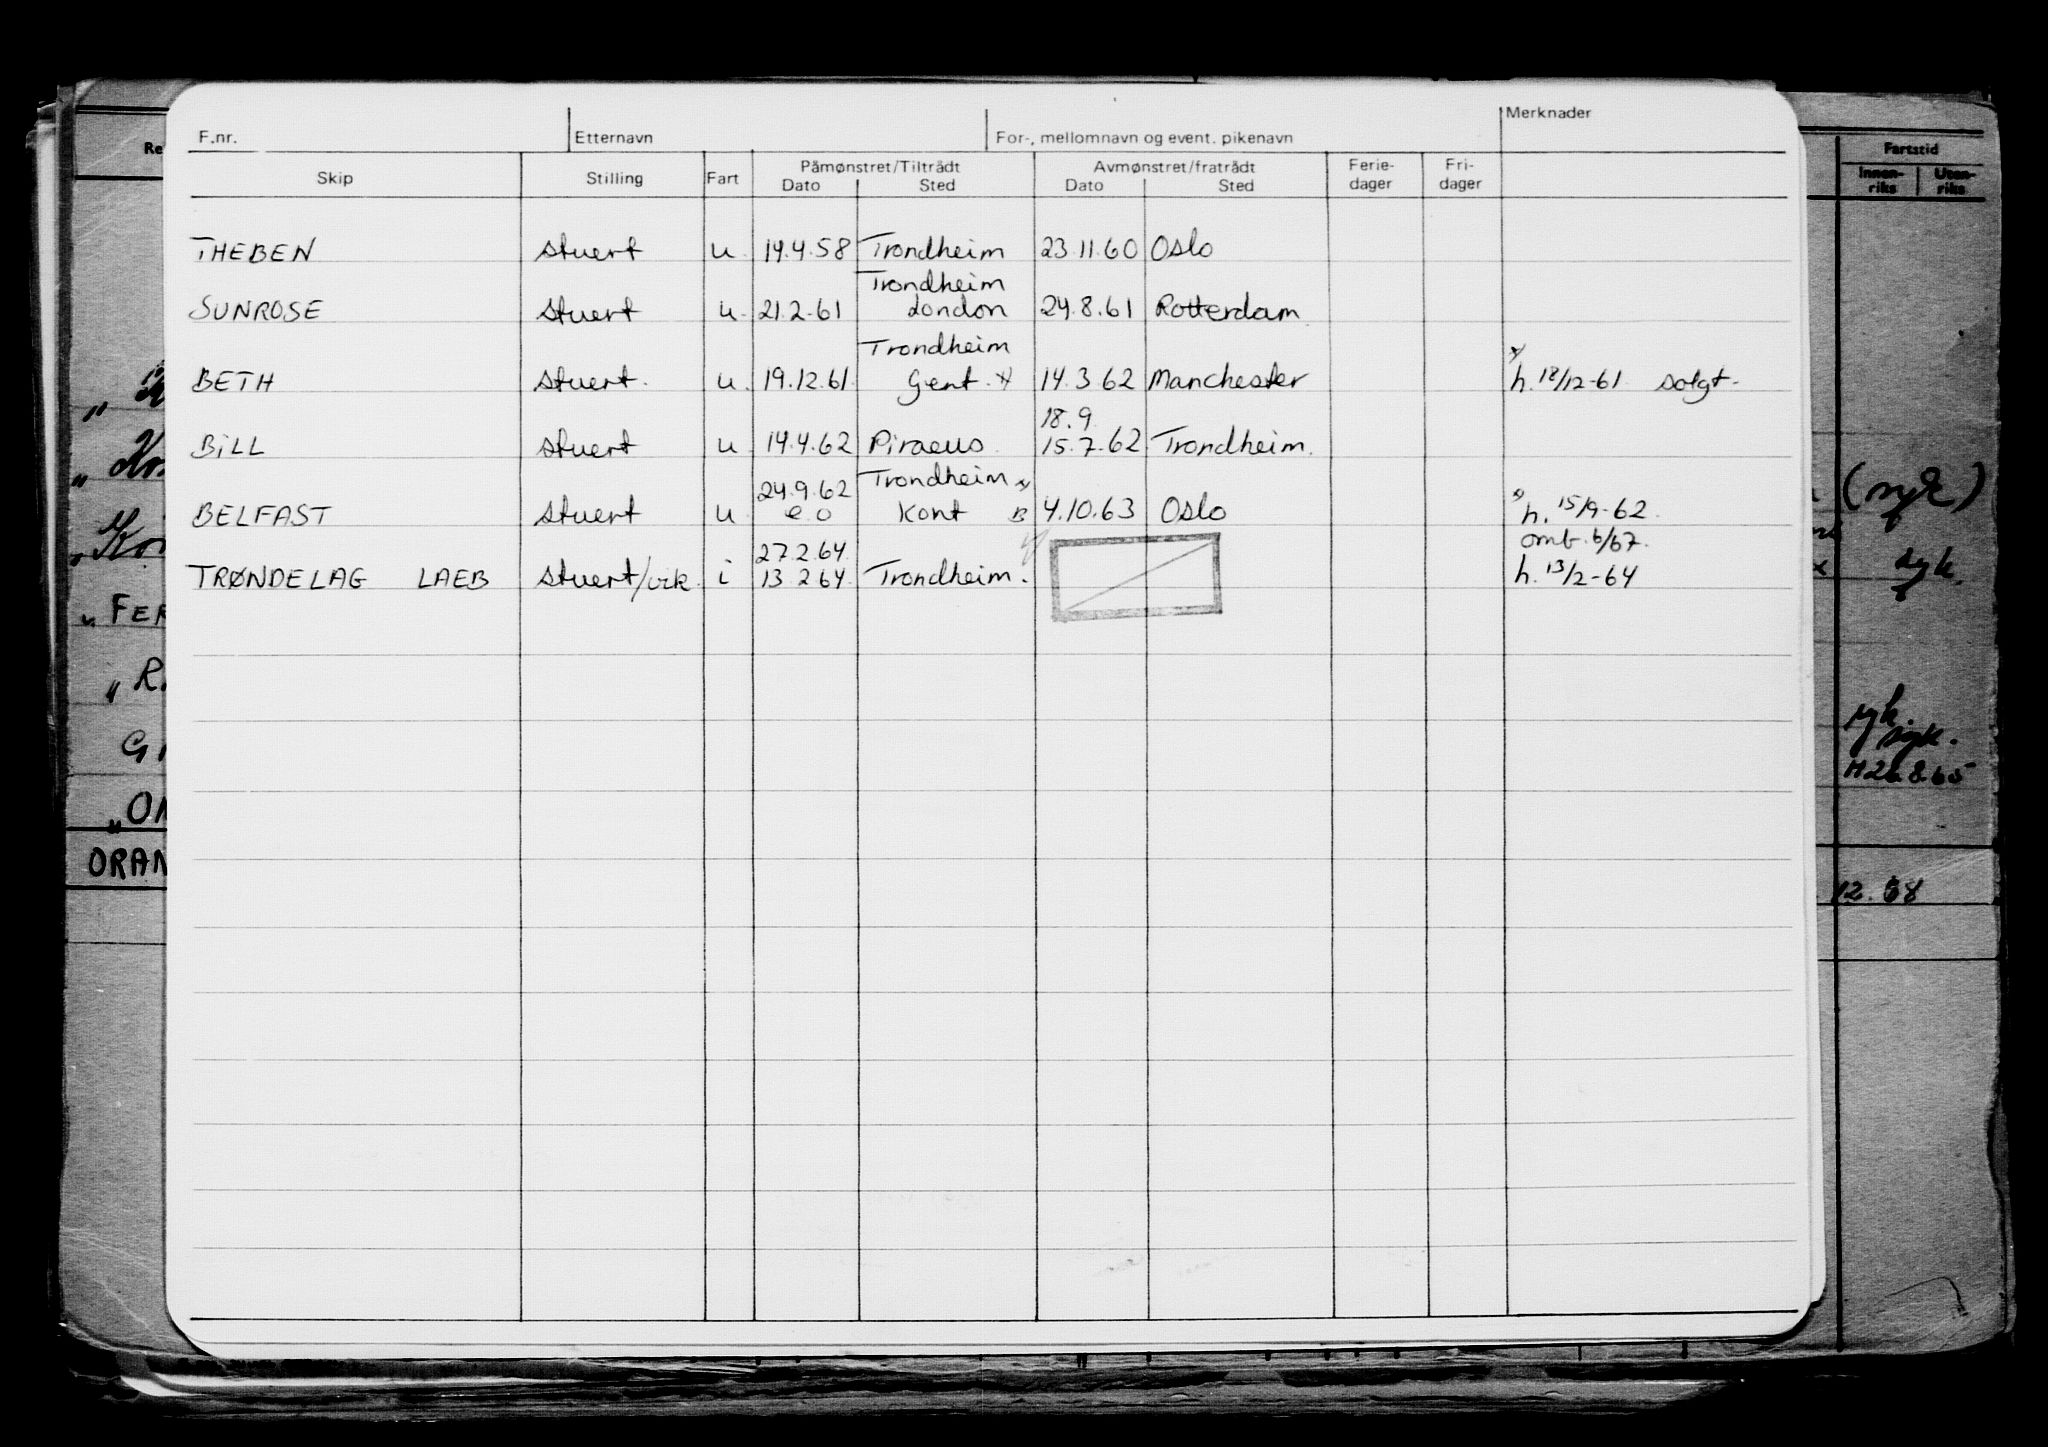 F.nr. Etternavn For-, mellomnavn og event. pikenavn Merknader
Skip Stilling Fart Påmønstret/Tiltrådt Avmønstret/fratrådt Ferie-dager Fri-dager
Dato Sted Dato Sted
THEBEN stuert u. 14.4.58 Trondheim 23.11.60 Oslo
Trondheim
SUNROSE stuert u. 21.2.61 London 24.8.61 Rotterdam
Trondheim
BETH stuert. u. 19.12.61. Gent. x/ 14.3.62 Manchester x/ h. 18/12-61. solgt-
18.9.
BILL stuert u. 14.4.62 Piraeus. 15.7.62 Trondheim.
24.9.62 Trondheim x/
BELFAST stuert u. e.o Kont B 4.10.63 Oslo x/ h. 15/9-62.
27.2.64. omb. 6/67.
TRØNDELAG LAEB stuert/vik. i 13.2.64. Trondheim. h. 13/2-64
Fartstid
Innen-riks Uten-riks
(syk)
syk.
syk.
syk.
H 26.8.65
12.68
Re
"FER
"R.
GI
"ON
ORAN